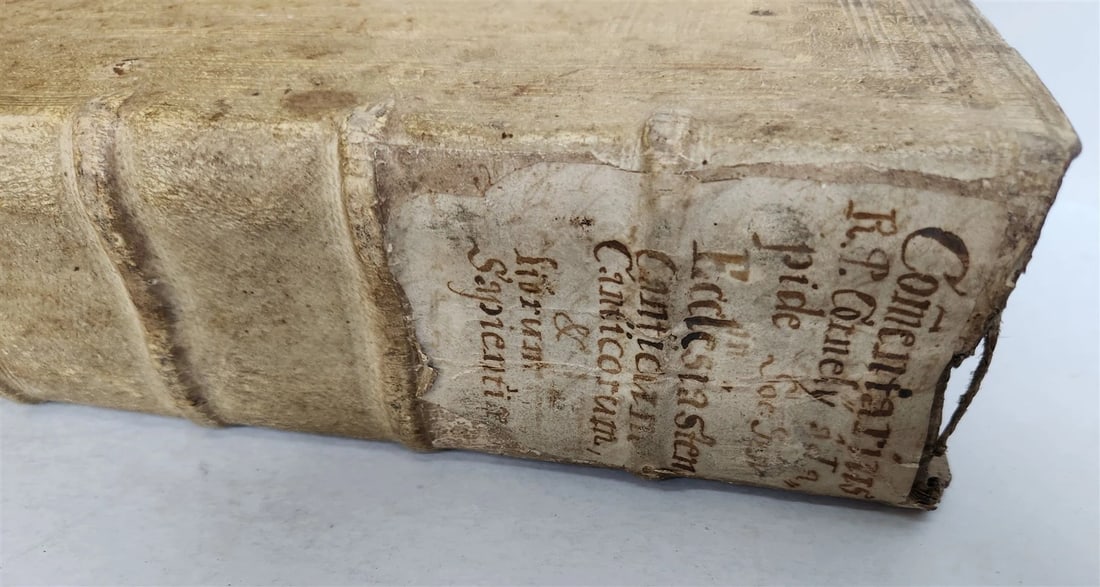 Comentarius
R. P. Cornelÿ a
pide Soc. Jesu
in
Ecclesiasten
Canticum
Canticorum,
&
librum
Sapientiæ